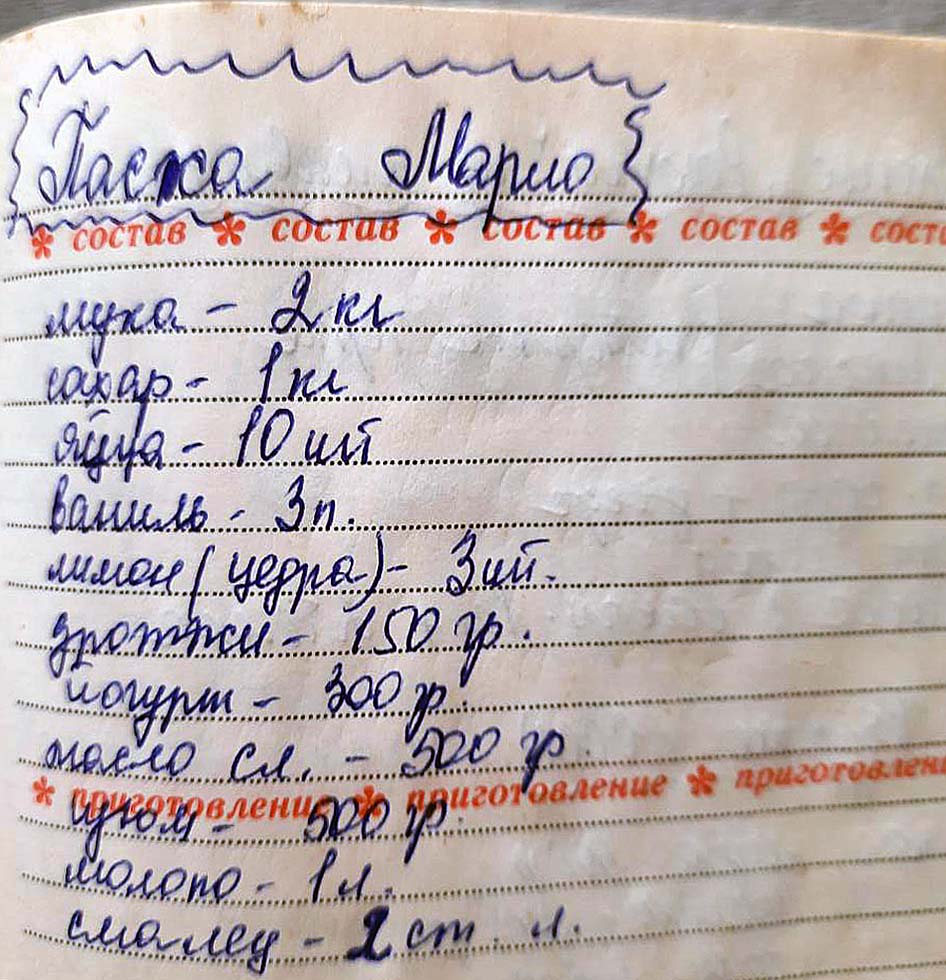 Пасха Марио
* состав * состав * состав * состав * соста
мука - 2 кг
сахар - 1 кг
яйца - 10 шт
ваниль - 3 п.
лимон (цедра) - 3 шт.
дрожжи - 150 гр.
йогурт - 300 гр.
масло сл. - 500 гр
* приготовление * приготовление * приготовлени
изюм - 500 гр.
молоко - 1 л.
смалец - 2 ст. л.